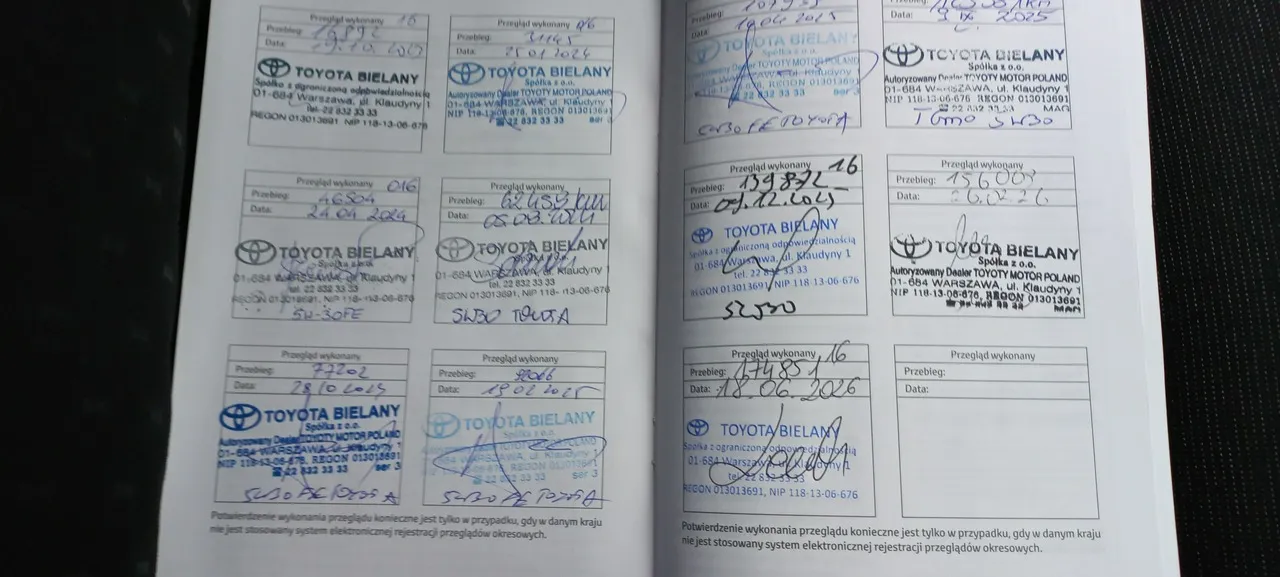 Przegląd wykonany 16
Przebieg: 16892
Data: 19.10.2023
TOYOTA BIELANY
Spółka z ograniczoną odpowiedzialnością
01-684 Warszawa, ul. Klaudyny 1
tel. 22 832 33 33
REGON 013013691, NIP 118-13-06-676
Przegląd wykonany
Przebieg: 31145
Data: 25 01 2024
TOYOTA BIELANY
Spółka z o.o.
Autoryzowany Dealer TOYOTY MOTOR POLAND
01-684 WARSZAWA, ul. Klaudyny 1
NIP 118-13-06-676, REGON 013013691
☎22 832 33 33 ser 3
Przegląd wykonany 016
Przebieg: 46504
Data: 24.04 2024
TOYOTA BIELANY
Spółka z o.o.
01-684 WARSZAWA, ul. Klaudyny 1
tel. 22 832 33 33
REGON 013013691, NIP 118-13-06-676
5W-30FE
Przegląd wykonany
Przebieg: 62459 km
Data: 05.08.2024
TOYOTA BIELANY
01-684 WARSZAWA, ul. Klaudyny 1
tel. 22 832 33 33
REGON 013013691, NIP 118-13-06-676
5W30 TOYOTA
Przegląd wykonany
Przebieg: 77202
Data:
TOYOTA BIELANY
Spółka z o.o.
Autoryzowany Dealer TOYOTY MOTOR POLAND
01-684 WARSZAWA, ul. Klaudyny 1
NIP 118-13-06-676, REGON 013013691
☎22 832 33 33 ser 3
5W30 FE TOYOTA
Przegląd wykonany
Przebieg: 92066
Data: 19 02 2025
TOYOTA BIELANY
Spółka z o.o.
Autoryzowany Dealer TOYOTY MOTOR POLAND
01-684 WARSZAWA, ul. Klaudyny 1
NIP 118-13-06-676, REGON 013013691
☎22 832 33 33 ser 3
5W30 FE TOYOTA
Potwierdzenie wykonania przeglądu konieczne jest tylko w przypadku, gdy w danym kraju
nie jest stosowany system elektronicznej rejestracji przeglądów okresowych.
Przebieg:
Data:
TOYOTA BIELANY
Spółka z o.o.
Autoryzowany Dealer TOYOTY MOTOR POLAND
01-684 WARSZAWA, ul. Klaudyny 1
NIP 118-13-06-676, REGON 013013691
☎22 832 33 33 ser 3
5W30 FE TOYOTA
Data: 9 IX 2025
TOYOTA BIELANY
Spółka z o.o.
Autoryzowany Dealer TOYOTY MOTOR POLAND
01-684 WARSZAWA, ul. Klaudyny 1
NIP 118-13-06-676, REGON 013013691
☎22 832 33 33 MAG
TGMO 5W30
Przegląd wykonany 16
Przebieg: 139872
Data: 09.12.2025
TOYOTA BIELANY
Spółka z ograniczoną odpowiedzialnością
01-684 Warszawa, ul. Klaudyny 1
tel. 22 832 33 33
REGON 013013691, NIP 118-13-06-676
5W30
Przegląd wykonany
Przebieg: 156003
Data: 26.02.26
TOYOTA BIELANY
Spółka z o.o.
Autoryzowany Dealer TOYOTY MOTOR POLAND
01-684 WARSZAWA, ul. Klaudyny 1
NIP 118-13-06-676, REGON 013013691
MAG
Przegląd wykonany 16
Przebieg: 174851
Data: 18.06.2026
TOYOTA BIELANY
Spółka z ograniczoną odpowiedzialnością
01-684 Warszawa, ul. Klaudyny 1
tel. 22 832 33 33
REGON 013013691, NIP 118-13-06-676
Przegląd wykonany
Przebieg:
Data:
Potwierdzenie wykonania przeglądu konieczne jest tylko w przypadku, gdy w danym kraju
nie jest stosowany system elektronicznej rejestracji przeglądów okresowych.